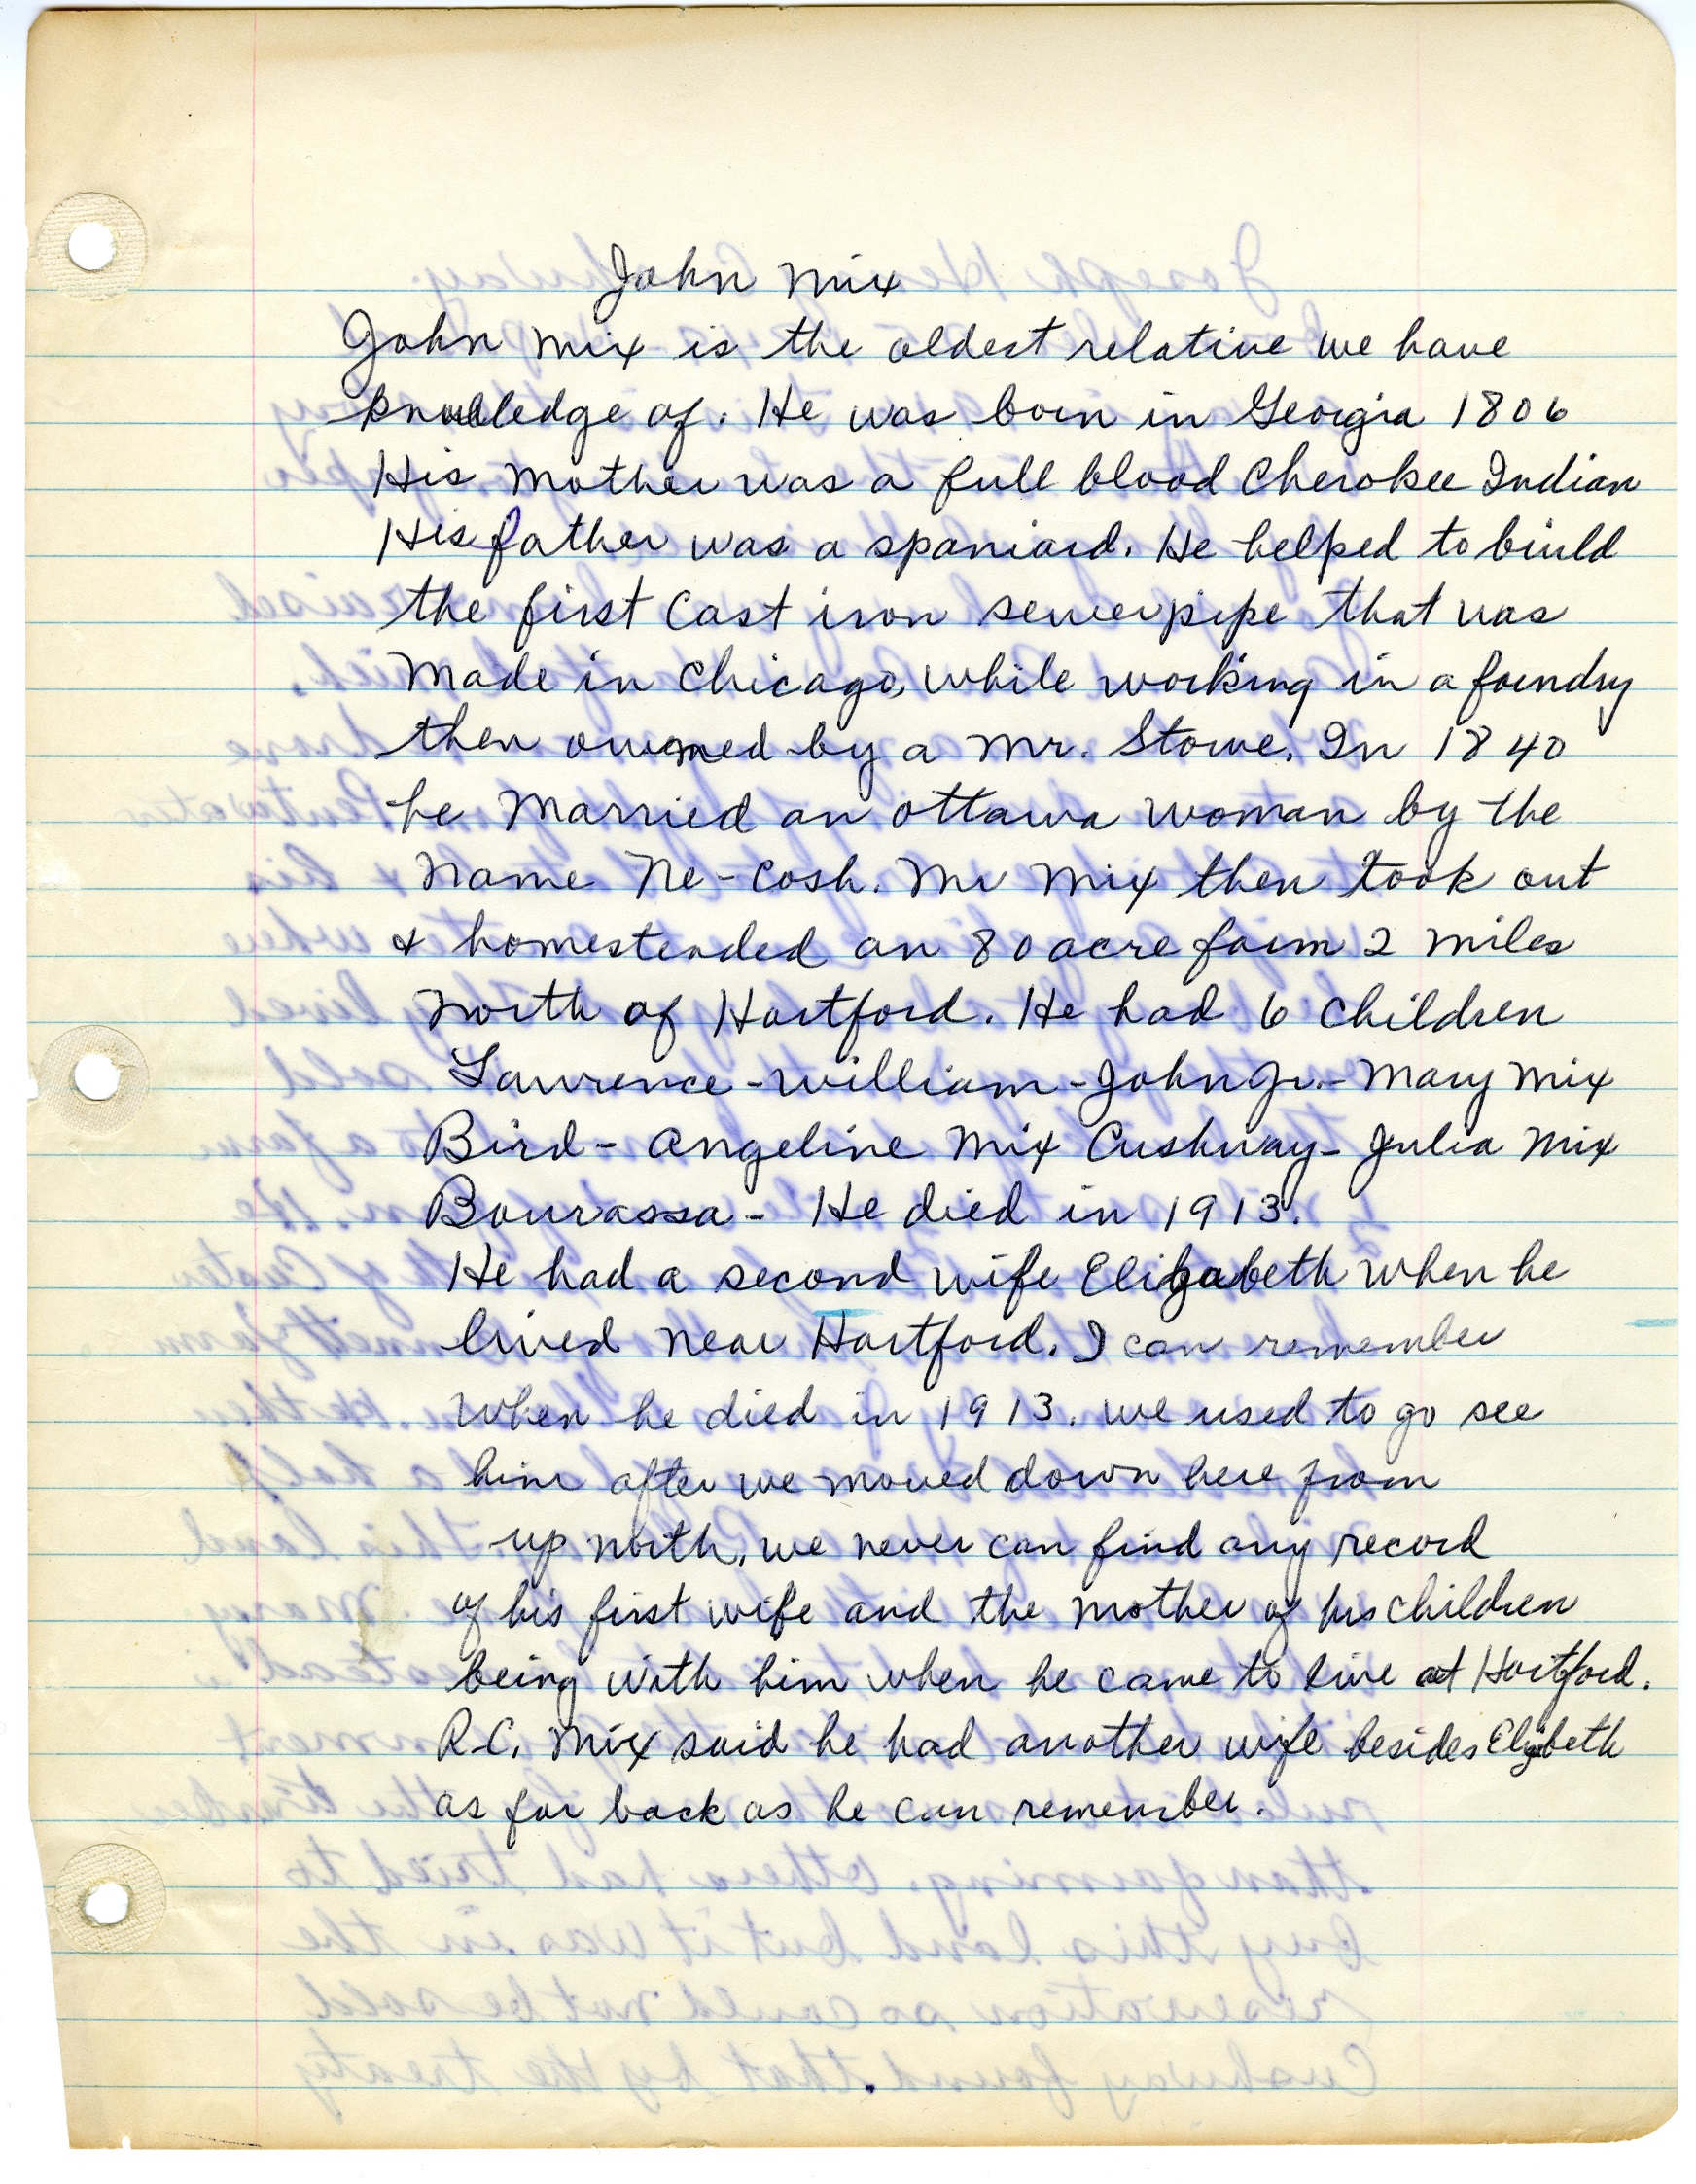 John Mix
John Mix is the oldest relative we have
knowledge of. He was born in Georgia 1806
His Mother was a full blood Cherokee Indian
His father was a spaniard. He helped to build
the first Cast iron sewer pipe that was
Made in Chicago, while working in a foundry
then owened by a Mr. Stowe. In 1840
he Married an ottawa woman by the
Name Ne-Cosh. Mr Mix then took out
& homesteaded an 80 acre farm 2 Miles
North of Hartford. He had 6 Children
Lawrence - William - John Jr. - Mary Mix
Bird - Angeline Mix Cushway - Julia Mix
Bourassa - He died in 1913.
He had a second wife Elizabeth when he
lived near Hartford. I can remember
when he died in 1913. we used to go see
him after we moved down here from
up north, we never can find any record
of his first wife and the mother of his children
being with him when he came to live at Hartford.
R.C. Mix said he had another wife besides Elizbeth
as far back as he can remember.